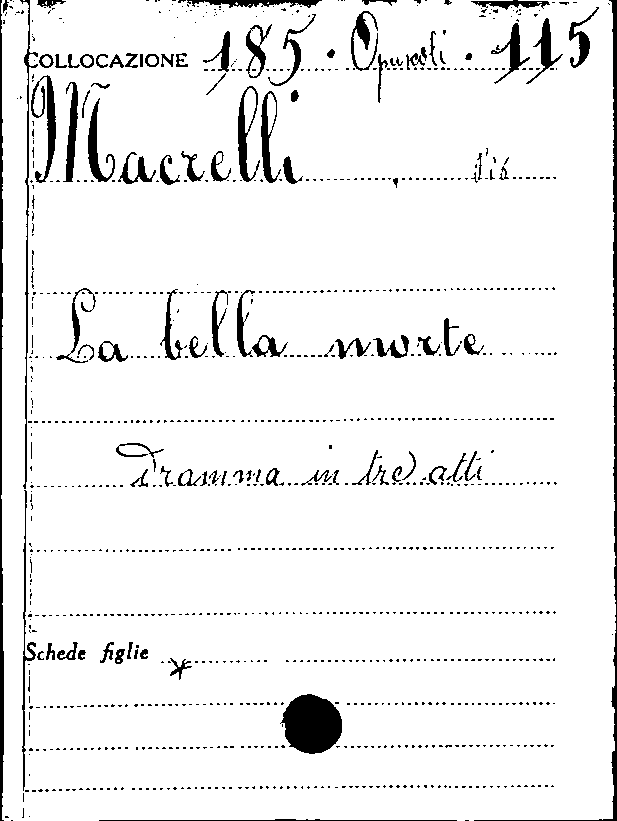 COLLOCAZIONE 185 · Opuscoli · 115
Macrelli
La bella morte
Dramma in tre atti
Schede figlie *